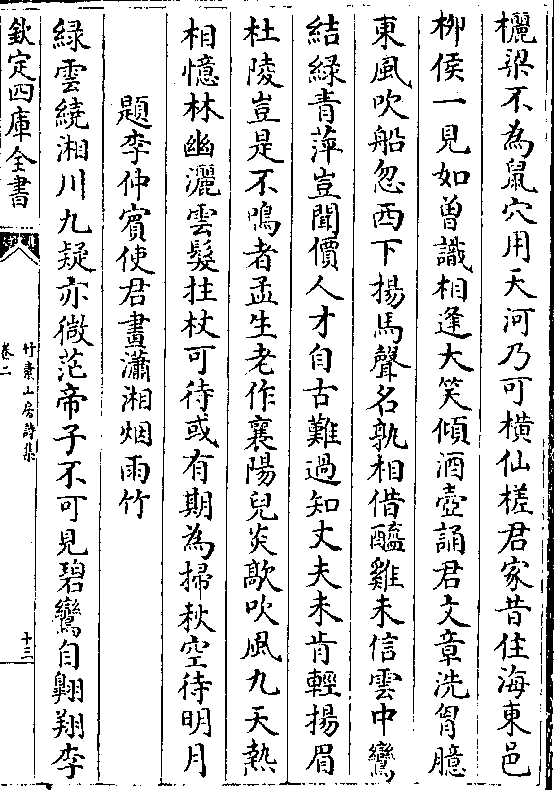 欐梁不為鼠穴用天河乃可横仙槎君家昔住海東邑
柳侯一見如曽識相逢大笑傾酒壺誦君文章洗胷臆
東風吹船忽西下揚馬聲名孰相借醯雞未信雲中鸞
結綠青萍豈聞價人才自古難過知丈夫未肯輕揚眉
杜陵豈是不鳴者孟生老作襄陽兒炎歊吹風九天熱
相憶林幽灑雲髮拄杖可待或有期為掃秋空待明月
題李仲賓使君畫瀟湘烟雨竹
緑雲繞湘川九疑亦微茫帝子不可見碧鸞自翺翔李
欽定四庫全書
竹素山房詩集
卷二
十三